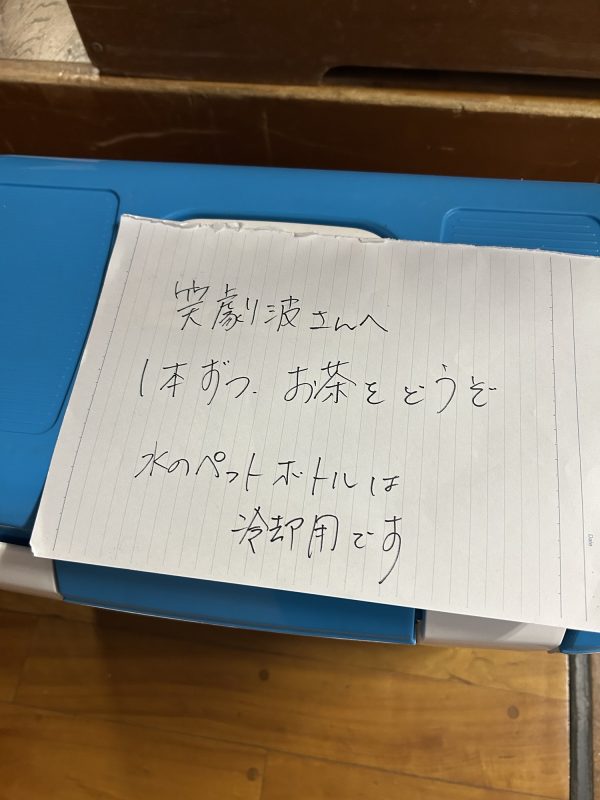 笑劇波さんへ
1本ずつ、お茶をどうぞ
水のペットボトルは
冷却用です
Date